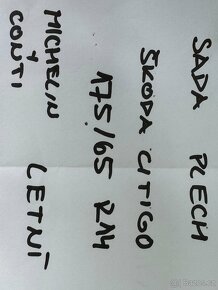 SADA PLECH
ŠKODA CITIGO
175/65 R14
MICHELIN LETNÍ
Y CONTI